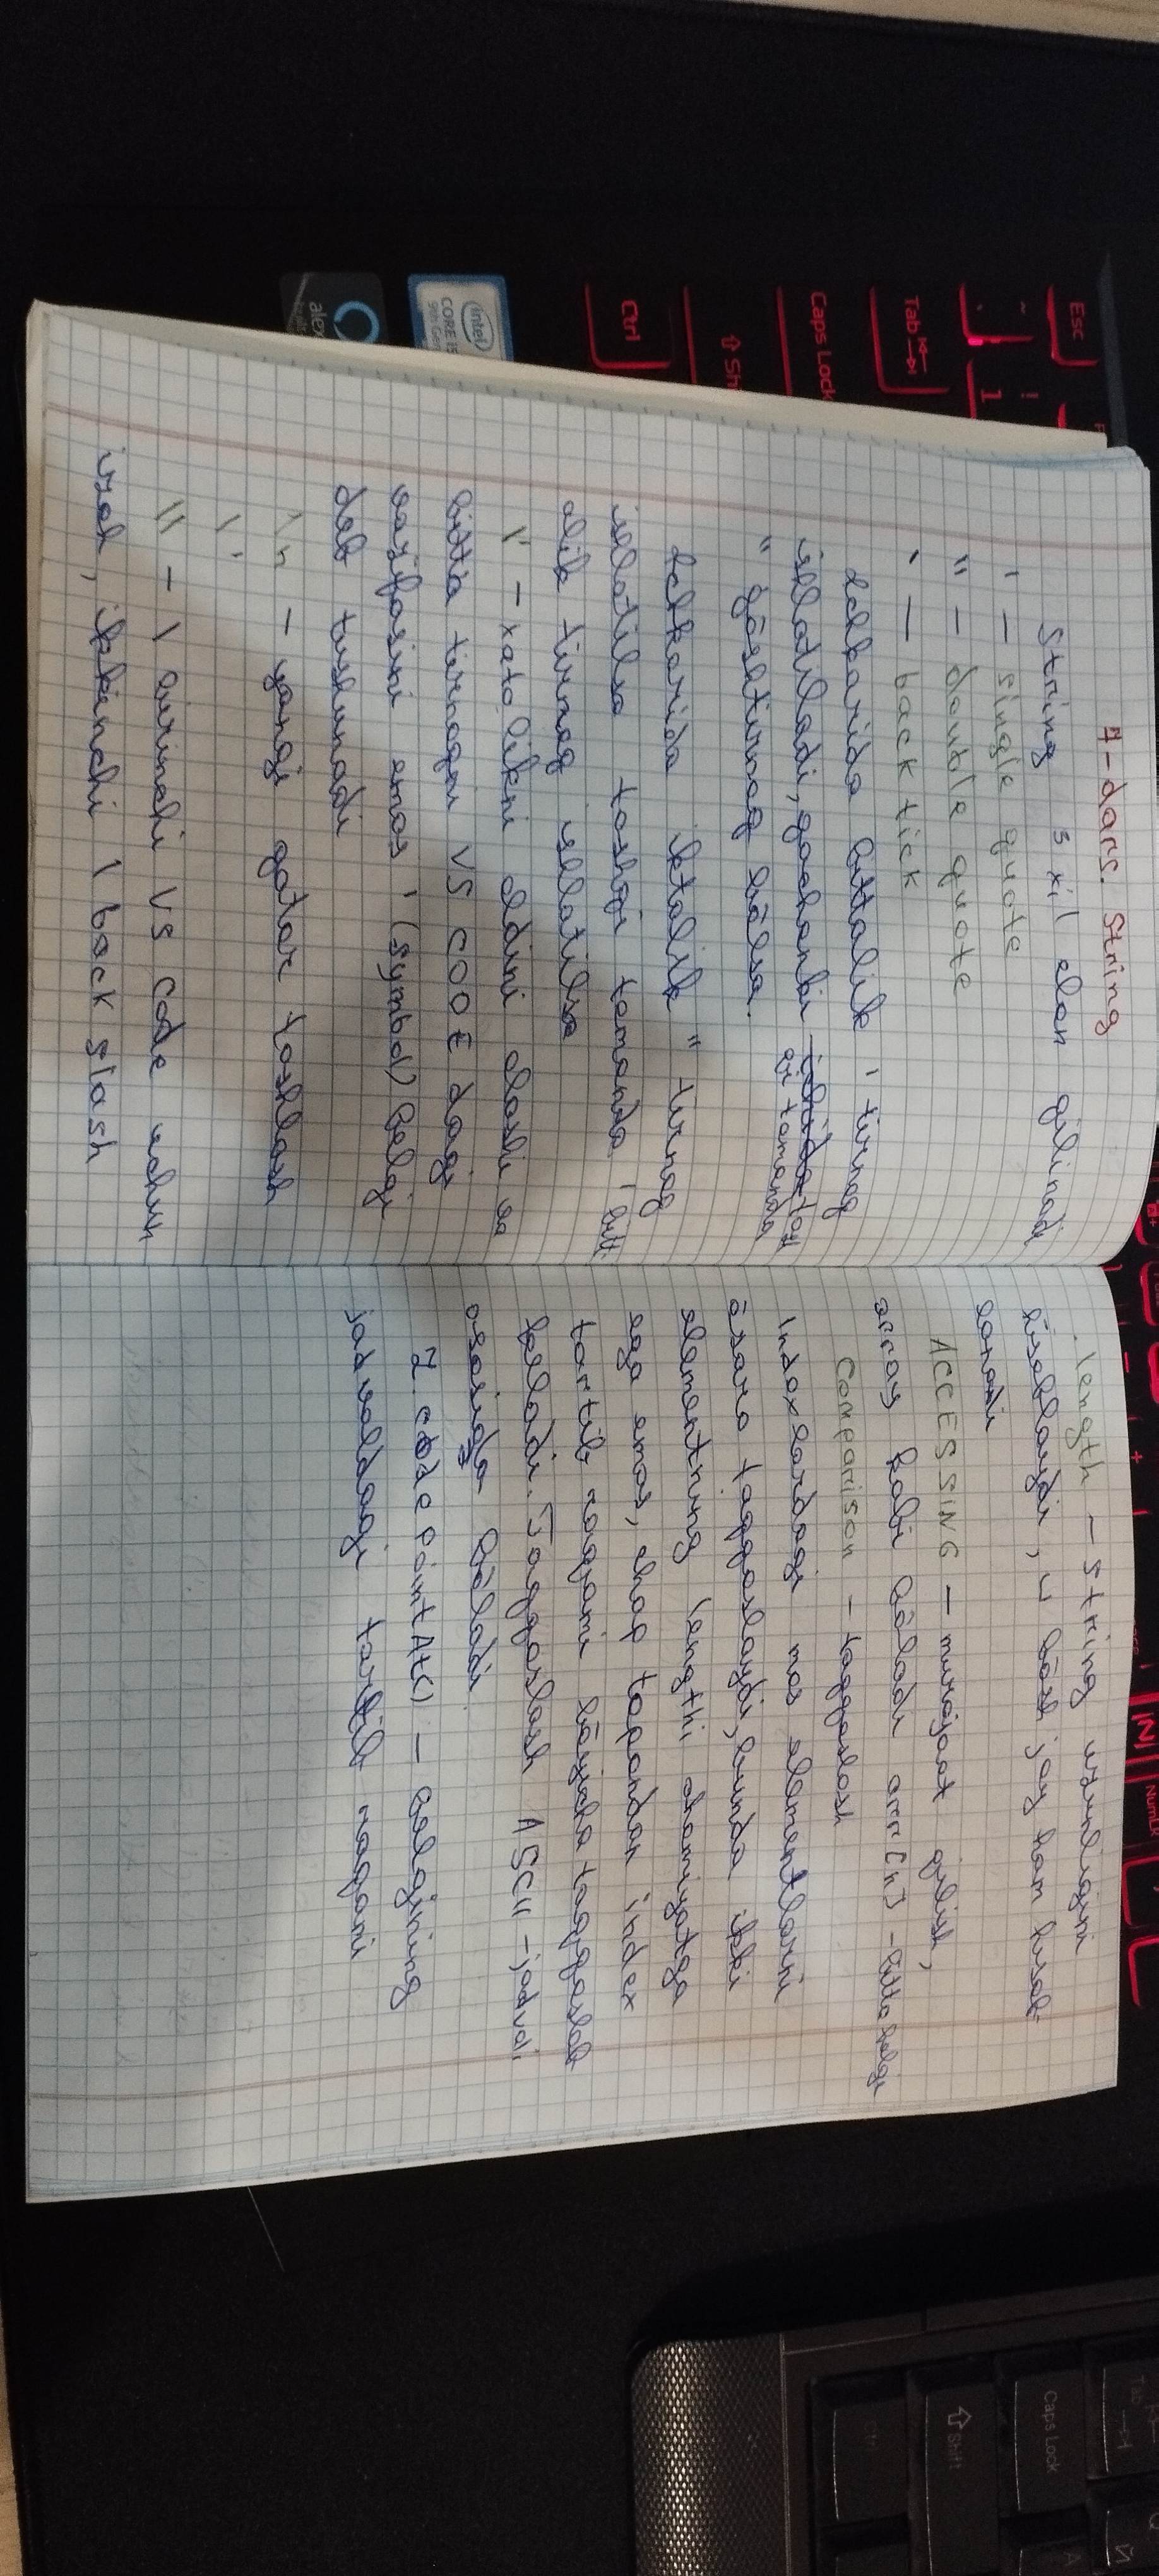 7-dars. String
String 3 xil elon qilinadi
' — single quote
" — double quote
` — back tick
Ichkarida bittalik ' tirnoq
ishlatiladi, qachonki tash
qi tomonda
" qōshtirnoq bōlsa.
Ichkarida iktalik " tirnoq
ishlatilsa tashqi tomonda ' bitt
alik tirnoq ishlatilsa
\' — xatolikni oldini oladi va
bitta tirnoqni VS CODE dagi
vazifasini emas ' (symbol) belgi
deb tushunadi
\n — yangi qator tashlash
\'
\\ — \ birinchi VS code uchun
izoh, ikkinchi \ back slash
length — string uzunligini
hisoblaydi, u bōsh joy ham hisob-
lanadi
ACCESSING — murojaat qilish,
array kabi bōladi arr[n] - bitta belgi
Comparison — taqqoslash
Indexlardagi mos elementlarni
ōzaro taqqoslaydi, bunda ikki
elementning lengthi ahamiyatga
ega emas, chap tarafdan index
tartib raqami bōyicha taqqoslab
keladi. Taqqoslash ASCII - jadvali
asosida bōladi.
2. codePointAt() — belgining
jadvaldagi tartib raqami
Esc
Tab
Caps Lock
Shi
Ctrl
intel
CORE i5
9th Gen
alexa
NumLk
Tab
Caps Lock
Shift
Ctrl